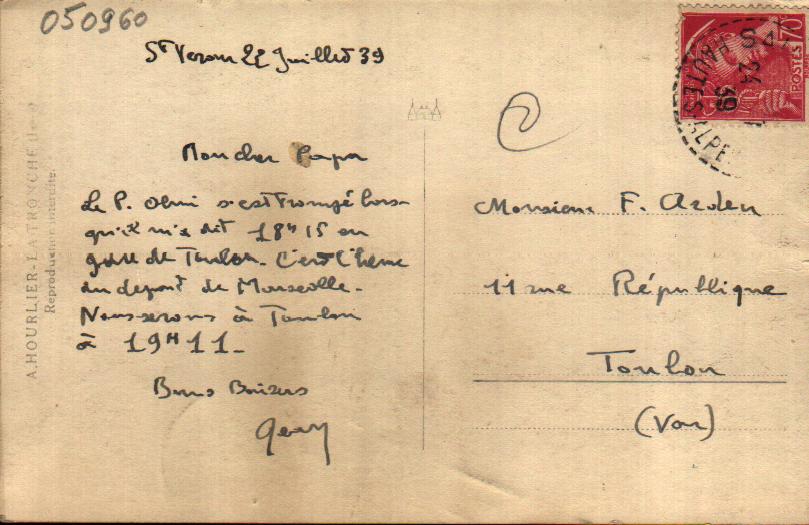 050960
St Veran 22 Juillet 39
Mon cher Papa
Le P. Olmi s'est trompé lors-
qu'il m'a dit 18H15 en
gare de Toulon. C'est l'heure
du départ de Marseille.
Nous serons à Toulon
à 19H11.
Bons Baisers
A. HOURLIER-LA TRONCHE
Reproduction interdite.
70
POSTES
24
39
HAUTES-ALPES
Monsieur F. Arden
11 rue République
Toulon
(Var)